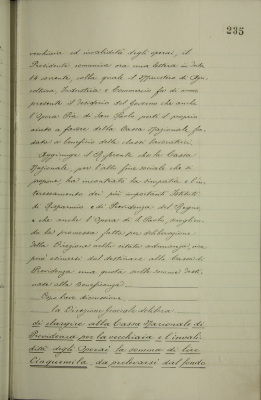 235
vecchiaia ed invalidità degli operai, il
Presidente comunica ora una lettera in data
14 corrente, colla quale il Ministero di Agri
coltura, Industria e Commercio fa di nuovo
presente il desiderio del Governo che anche
l'Opera Pia di San Paolo porti il proprio
aiuto a favore della Cassa Nazionale fon
data a beneficio delle classi lavoratrici.
Aggiunge il Riferente che la Cassa
Nazionale, per l'alto fine sociale che si
propone, ha incontrato la simpatia e l'in
teressamento dei più importanti Istituti
di Risparmio e di Previdenza del Regno,
e che anche l'Opera di S. Paolo,
la promessa fatta per deliberazione
della Direzione nella citata adunanza, non
può esimersi dal destinare alla Cassa di
Previdenza una quota sulle somme desti
nate alla beneficenza.
Dopo breve discussione
La Direzione Generale delibera
di elargire alla Cassa Nazionale di
Previdenza per la vecchiaia e l'invali
dità degli Operai la somma di lire
Cinquemila da prelevarsi dal fondo